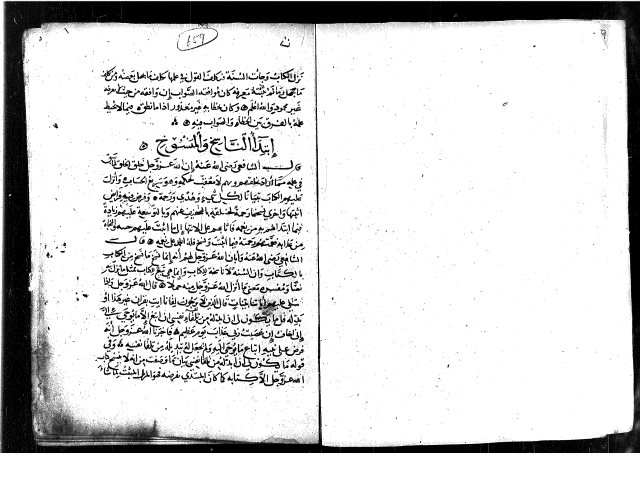 ١٥٩
نزل الكتاب وجات السنة فتكلف القول في علمها تكلف ما يجهل بعضه ومن تكلف
ما جهل وما لم تثبته معرفته كان موافقته الصواب إن وافقه من حيث لا يعرفه
غير محمودة والله اعلم وكان بخطائه غير معذور اذا ما نطق فيما لا يحيط
علمه بالفرق بين الخطا والصواب فيه
ابتدأ الناسخ والمنسوخ
قال الشافعي رضي الله عنه إن الله عز وجل خلق الخلق لما سبق
في علمه مما أراد بخلقهم وبهم لا معقب لحكمه وهو سريع الحساب وأنزل
عليهم الكتاب تبيانا لكل شيء وهدى ورحمة وفرض فيه فرايض
اثبتها واخرى نسخها رحمة لخلقه بالتخفيف عنهم وبالتوسعة عليهم زيادة
فيما ابتداهم به من نعمه واثابهم على الانتها إلى ما اثبت عليهم جنته والنجاة
من عذابه فعمتهم رحمته فيما اثبت ونسخ فله الحمد على نعمه قال
الشافعي رضي الله عنه وأبان الله عز وجل لهم أنه إنما نسخ ما نسخ من الكتاب
بالكتاب وان السنة لا ناسخة للكتاب وإنما هي تبع للكتاب بمثل ما نزل به
نصا ومفسرة معنى ما أنزل الله عز وجل منه جملا قال الله عز وجل وإذا
تتلى عليهم آياتنا بينات قال الذين لا يرجون لقانا ايت بقران غير هذا او
بدله قل ما يكون لي ان ابدله من تلقاء نفسي ان اتبع الا ما يوحى إلي
إني اخاف إن عصيت ربي عذاب يوم عظيم فاخبرنا الله عز وجل أنه
فرض على نبيه اتباع ما يوحى اليه ولم يجعل له تبديله من تلقا نفسه وفي
قوله ما يكون لي ان ابدله من تلقا نفسي بيان لما وصفت من انه لا ينسخ كتاب
الله عز وجل الا كتابه كما كان المبتدي بفرضه فهو المزيل المثبت لما شاء